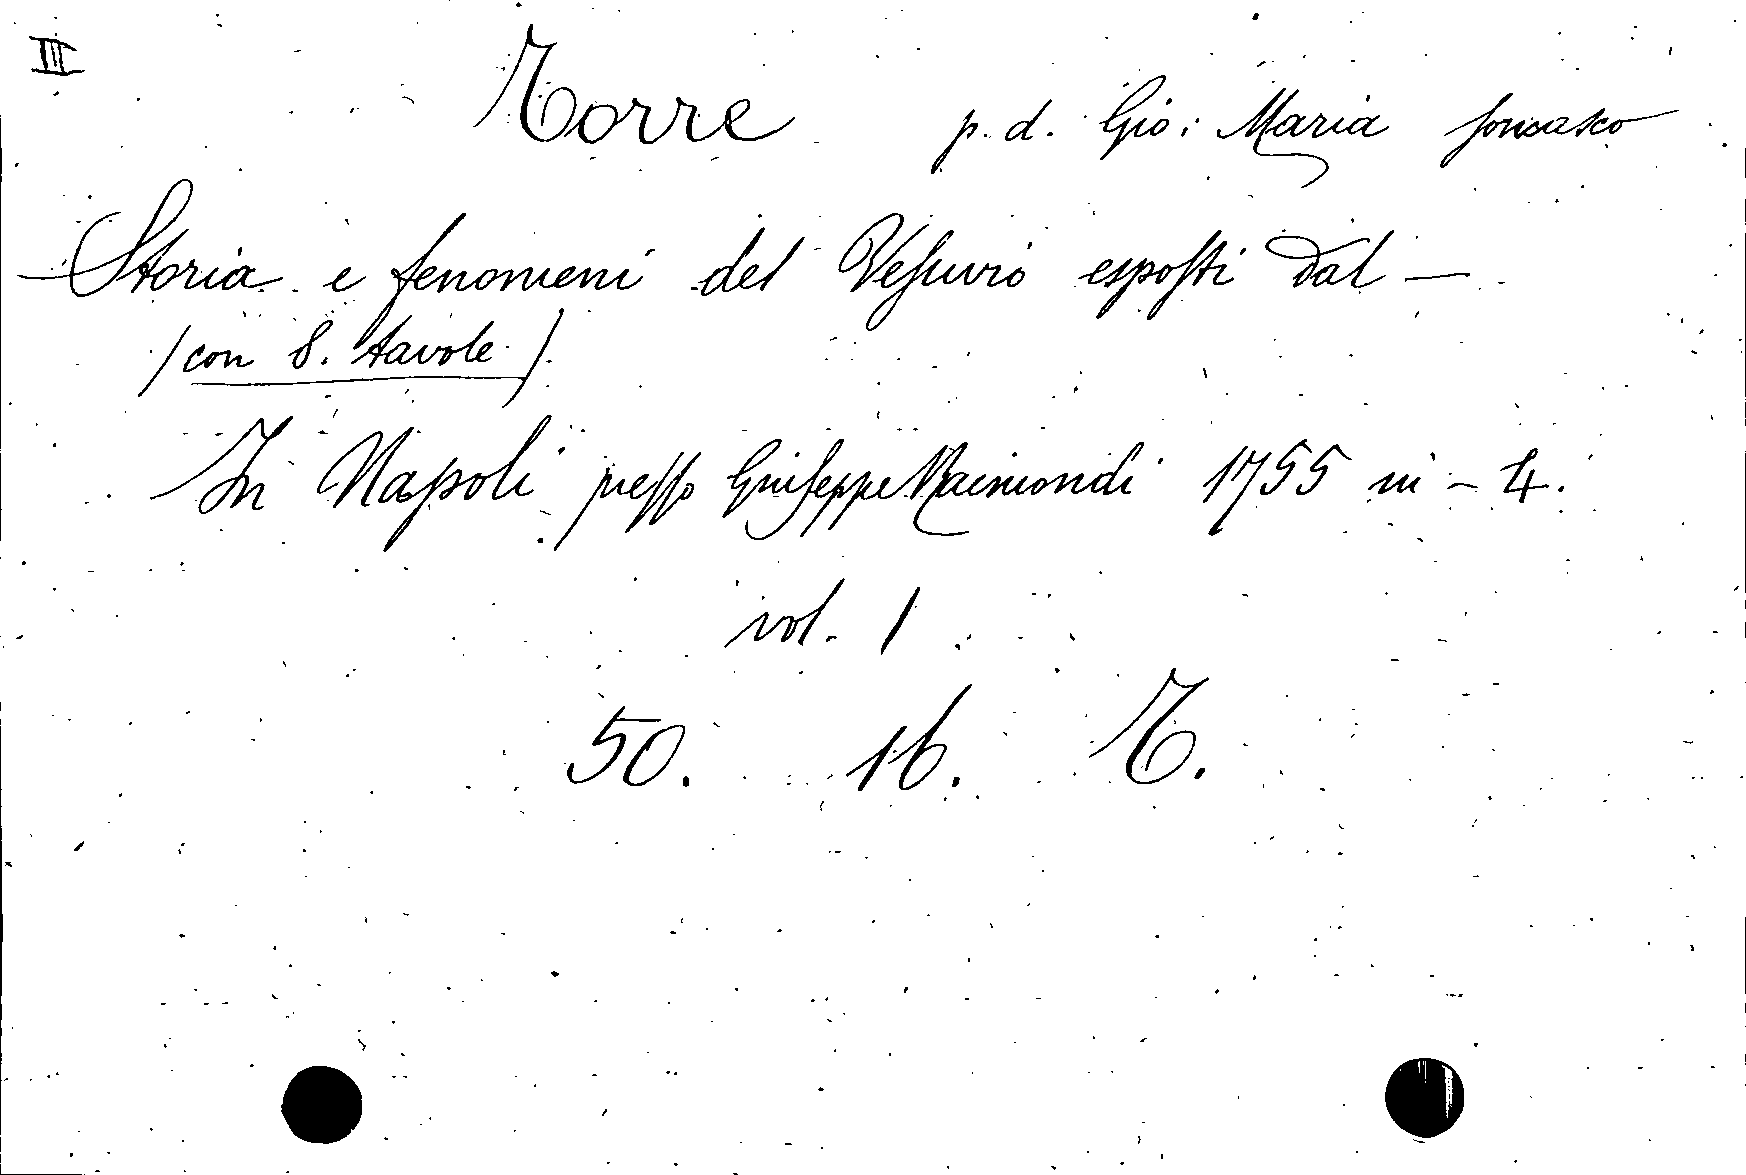 III
Torre p. d. Gio: Maria somasco
Storia e fenomeni del Vesuvio esposti dal —
(con 8. tavole)
In Napoli presso Giuseppe Raimondi 1755 in - 4.
vol. 1
50. 16. T.